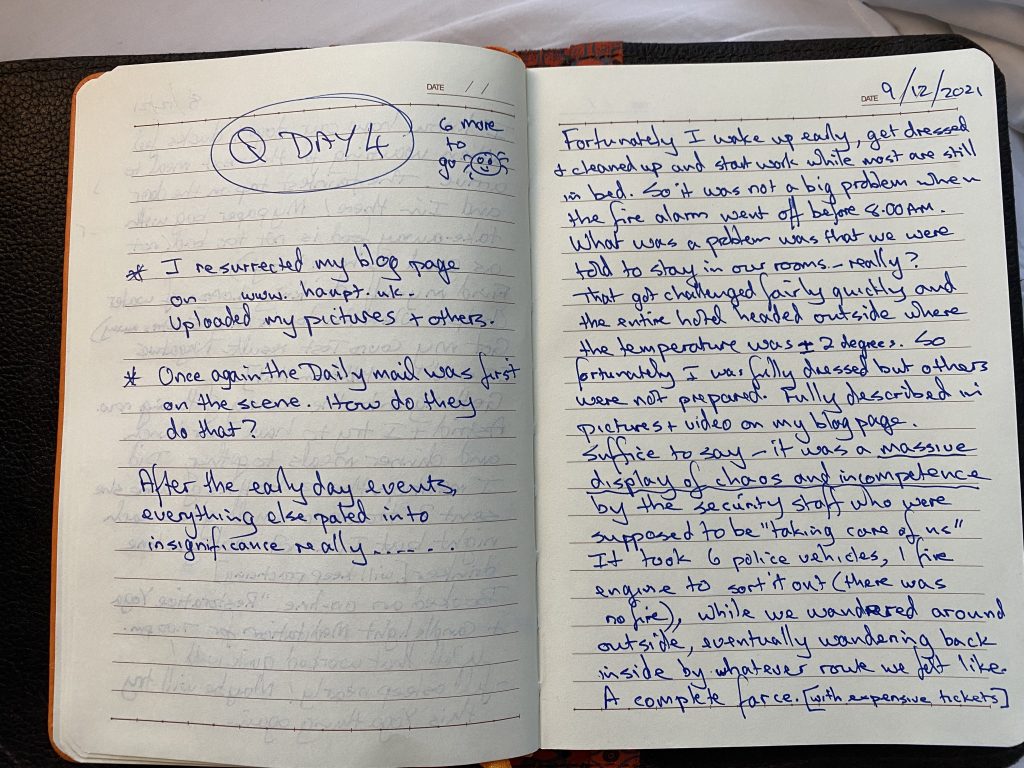 DATE / /
Q DAY 4
6 more
to
go
* I resurrected my blog page
on www.haupt.uk.
Uploaded my pictures + others.
* Once again the Daily mail was first
on the scene. How do they
do that?
After the early day events,
everything else pated into
insignificance really......
DATE 9/12/2021
Fortunately I wake up early, get dressed
+ cleaned up and start work while most are still
in bed. So it was not a big problem when
the fire alarm went off before 8.00AM.
What was a problem was that we were
told to stay in our rooms - really?
That got challenged fairly quickly and
the entire hotel headed outside where
the temperature was ± 2 degrees. So
fortunately I was fully dressed but others
were not prepared. Fully described in
pictures + video on my blog page.
Suffice to say - it was a massive
display of chaos and incompetence
by the security staff who were
supposed to be "taking care of us"
It took 6 police vehicles, 1 fire
engine to sort it out (there was
no fire), while we wandered around
outside, eventually wandering back
inside by whatever route we felt like.
A complete farce. [with expensive tickets]